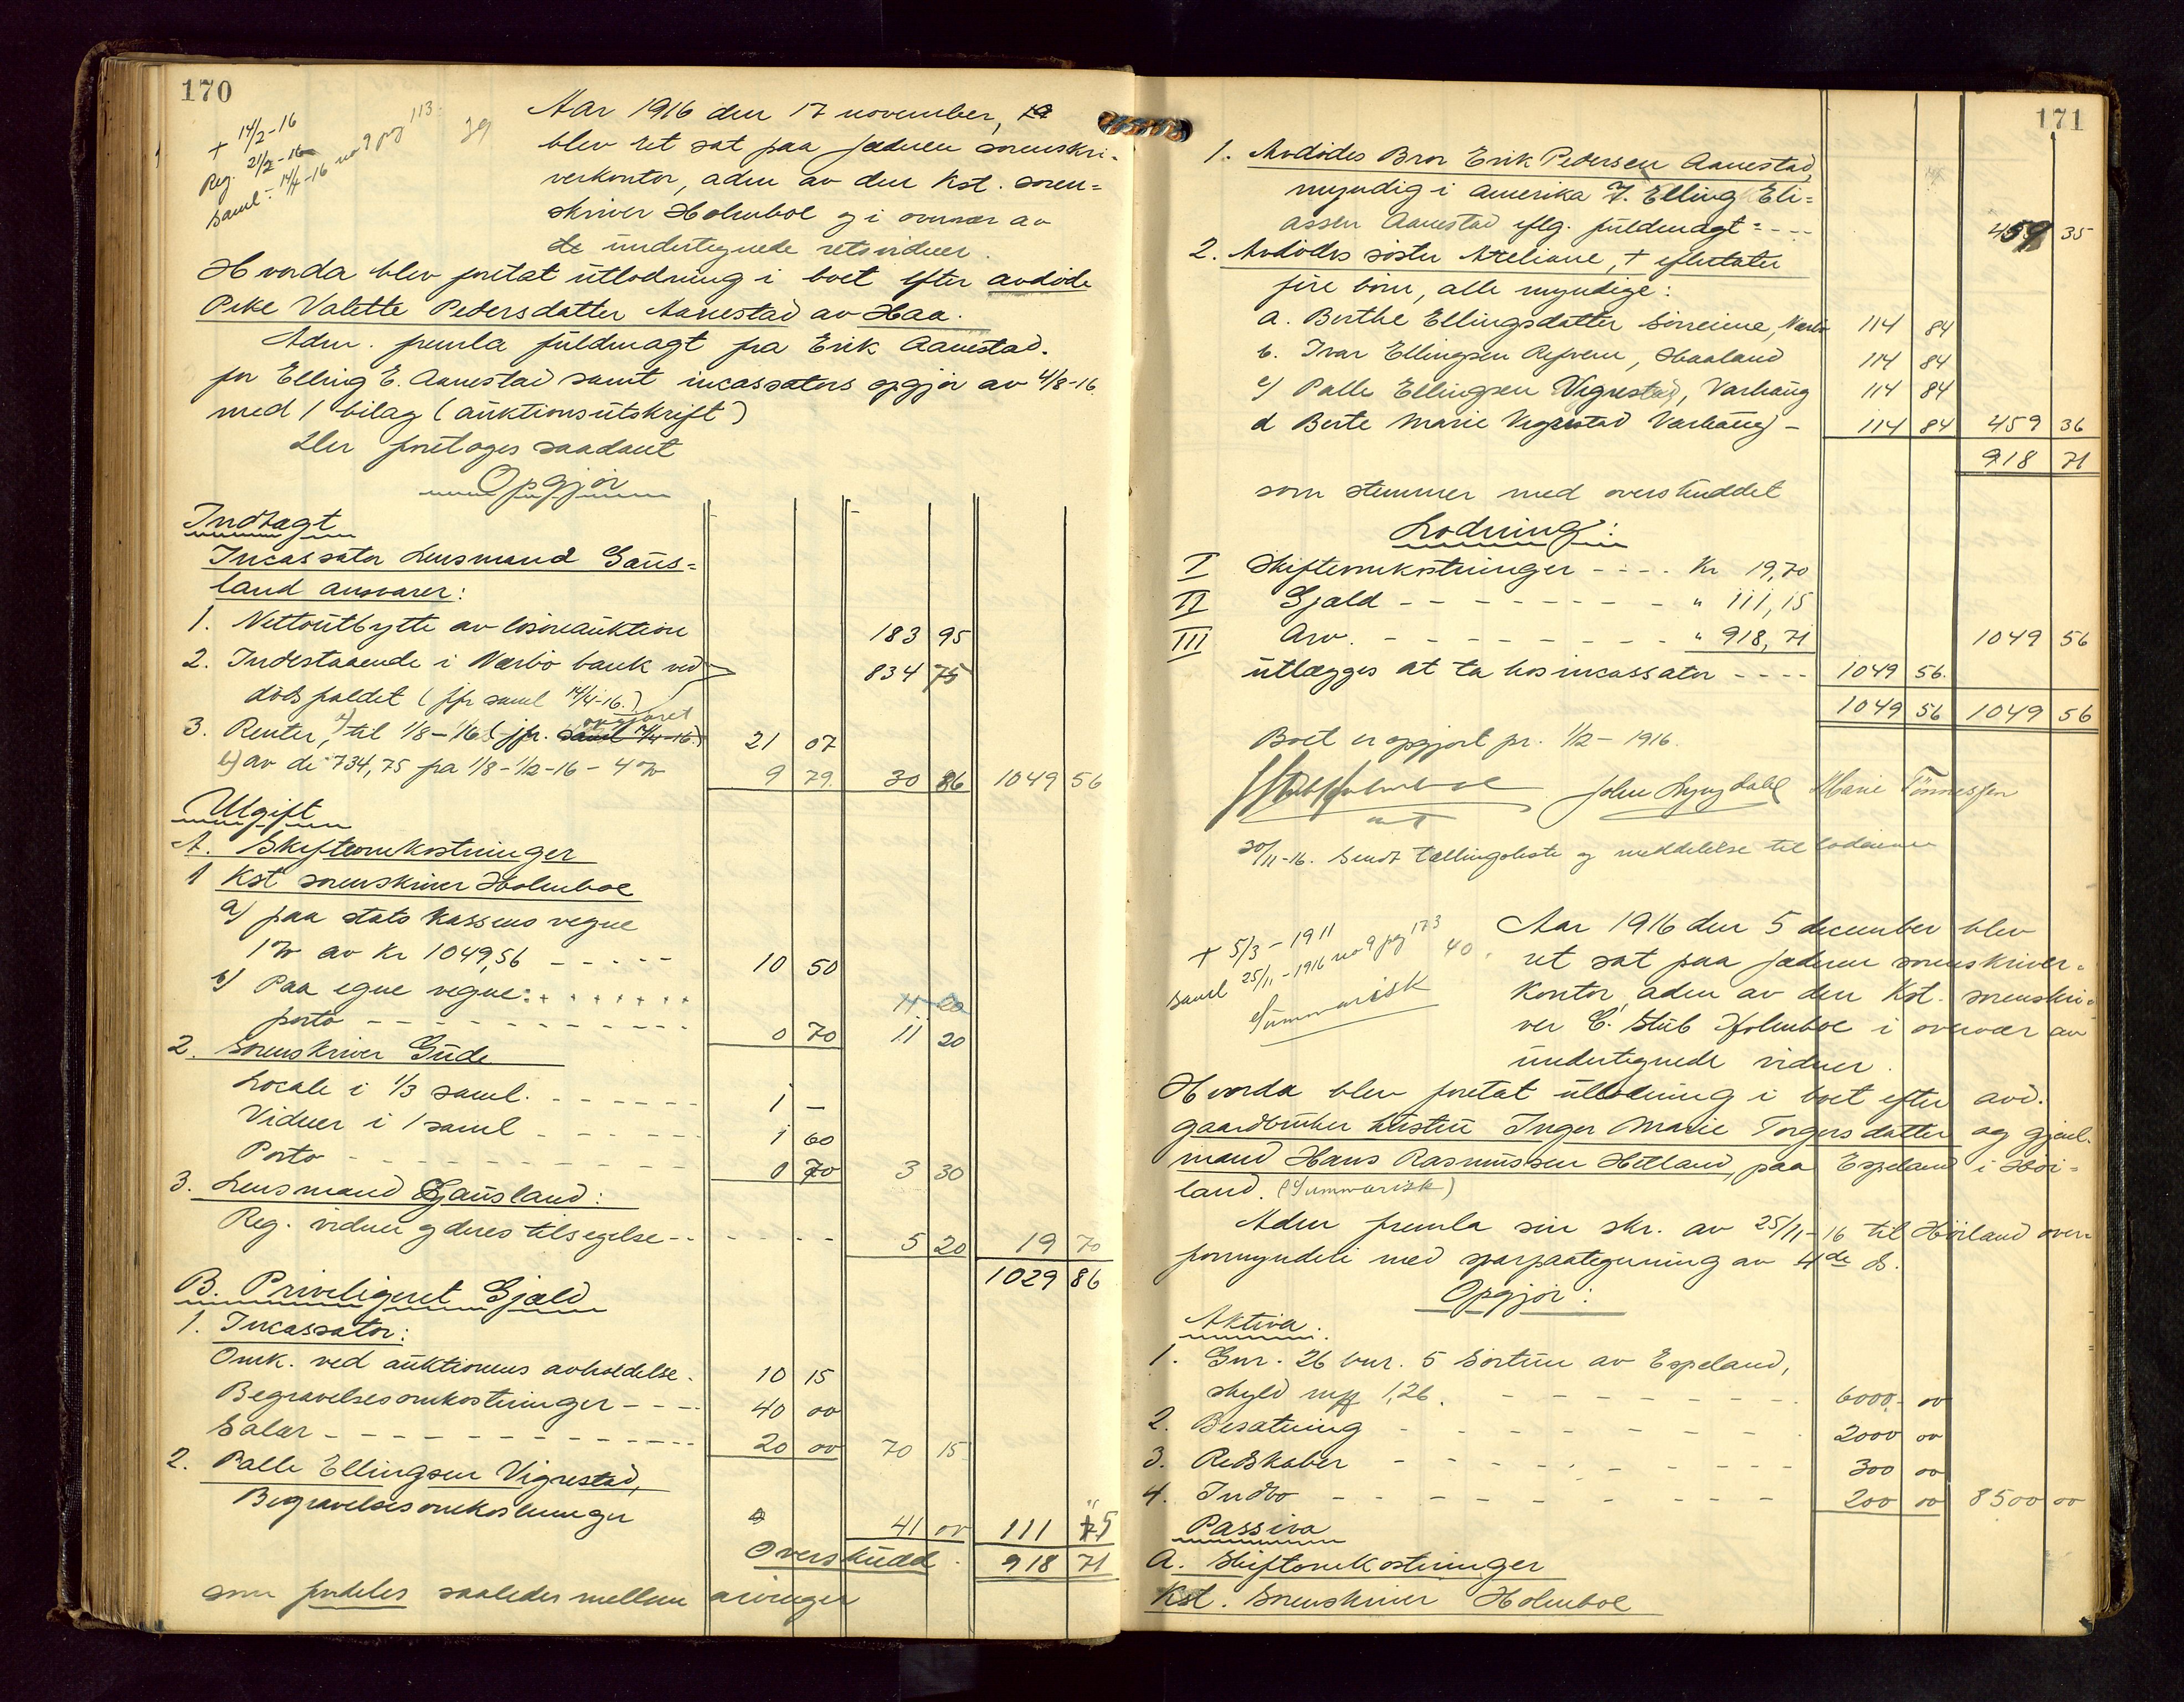 170
+ 14/2-16
Reg. 21/2-16
Saml: 14/4-16 no 9 pag 113.
39
Aar 1916 den 17 november,
blev ret sat paa Jæderen sorenskri-
verkontor, adm av den Kst. soren-
skriver Holmboe og i overvær av
de undertegnede retsvidner.
Hvorda blev foretat utlodning i boet efter avdøde
Peke Valette Pedersdatter Aanestad av Haa.
Adm. fremla fuldmagt fra Erik Aanestad.
for Elling E. Aanestad samt incassators opgjør av 4/8-16.
med 1 bilag (auktionsutskrift)
Der foretoges saadant
Opgjør
Indtægt
Incassator Lensmand Gaus-
land ansvarer:
1. Nettoutbytte av løsøreauktion 183 95
2. Indestaaende i Nærbø bank ved 834 75
dødsfaldet (jfr saml 14/4-16.)
3. Renter, a) til 1/8-16 (jfr. saml 14/4-16) opgjøret 21 07
b) av de 734,75 fra 1/8-1/12-16 - 4 % 9 79. 30 86 1049 56
Utgift
A. Skifteomkostninger
1 Kst sorenskriver Holmboe
a) paa stats kassens vegne
1 % av Kr 1049,56 - - - - - 10 50
b) Paa egne vegne:
porto - - - - - - - - 0 70 11 20
2. Sorenskriver Gude
Locale i 1/3 saml. - - - - - - 1 -
Vidner i 1 saml - - - - - - 1 60
Porto - - - - - - - - 0 70 3 30
3. Lensmand Gausland:
Reg. vidner og deres tilsigelse - - - - - - 5 20 19 70
1029 86
B. Priveligeret Gjæld
1. Incassator:
Omk. ved auktionens avholdelse. 10 15
Begravelsesomkostninger - - - - 40 00
Salær - - - - - - - - - - 20 00 70 15
2. Palle Ellingsen Vigrestad,
Begravelsesomkostninger 41 00 111 15
Overskudd. 918 71
som fordeles saaledes mellem arvinger
171
1. Avdødes Bror Erik Pedersen Aanestad,
myndig i Amerika f. Elling Eli-
assen Aanestad iflg. fuldmagt: - - - 459 35
2. Avdødes søster Areliane, + efterlater
fire børn, alle myndige:
a. Berthe Ellingsdatter Sørreime, Nærbø 114 84
b. Ivar Ellingsen Refvem, Haaland 114 84
c) Palle Ellingsen Vigrestad, Varhaug 114 84
d Berte Marie Vigrestad Varhaug - 114 84 459 36
918 71
som stemmer med overskuddet
Lodning:
I Skifteomkostninger - - - - Kr 19,70
II Gjæld - - - - - - - - - " 111,15
III Arv. - - - - - - - - - " 918,71 1049 56
utlægges at ta hos incassator - - - - 1049 56.
1049 56 1049 56
Boet er opgjort pr. 1/12-1916.
John Lyngdahl Marie Tønnessen
30/11-16. Sendt tællingsliste og meddelelse til lodeierne
+ 5/3-1911
saml 25/11-1916 no 9 pag 173
Summarisk
40.
Aar 1916 den 5 december blev
ret sat paa Jæderen sorenskriver-
kontor, adm av den Kst. sorenskri-
ver C. Stub Holmboe i overvær av
undertegnede vidner.
Hvorda blev foretat utlodning i boet efter avd.
gaardbruker hustru Inger Marie Torgersdatter og gjenl.
mand Hans Rasmussen Hetland, paa Espeland i Høi-
land. (Summarisk)
Adm fremla sin skr. av 25/11-16 til Høiland over-
formynderi med svarpaategning av 4de ds.
Opgjør:
Aktiva.
1. Gnr. 26 bnr. 5 Sortun av Espeland,
skyld mrk 1,26. - - - - - - - - 6000 00
2. Besætning - - - - - - - - 2000 00
3. Redskaber - - - - - - - - 300 00
4. Indbo - - - - - - - - 200 00 8500 00
Passiva
A. Skifteomkostninger
Kst. Sorenskriver Holmboe